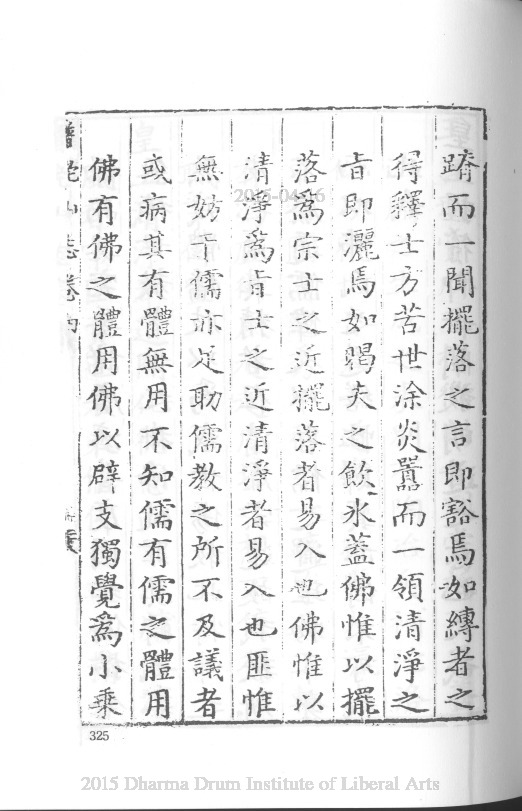 躋而一聞擺落之言即豁焉如縛者之
得釋士方苦世塗炎囂而一領清淨之
旨即灑焉如暍夫之飲氷蓋佛惟以擺
落為宗士之近擺落者易入也佛惟以
清淨為旨士之近清淨者易入也匪惟
無妨于儒亦足助儒教之所不及議者
或病其有體無用不知儒有儒之體用
佛有佛之體用佛以辟支獨覺為小乘
山志卷
325
2015 Dharma Drum Institute of Liberal Arts